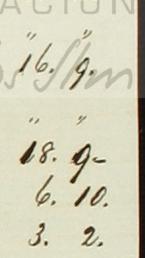 ACIÓN
" "
16. 9.
" "
18. 9-
6. 10.
3. 2.